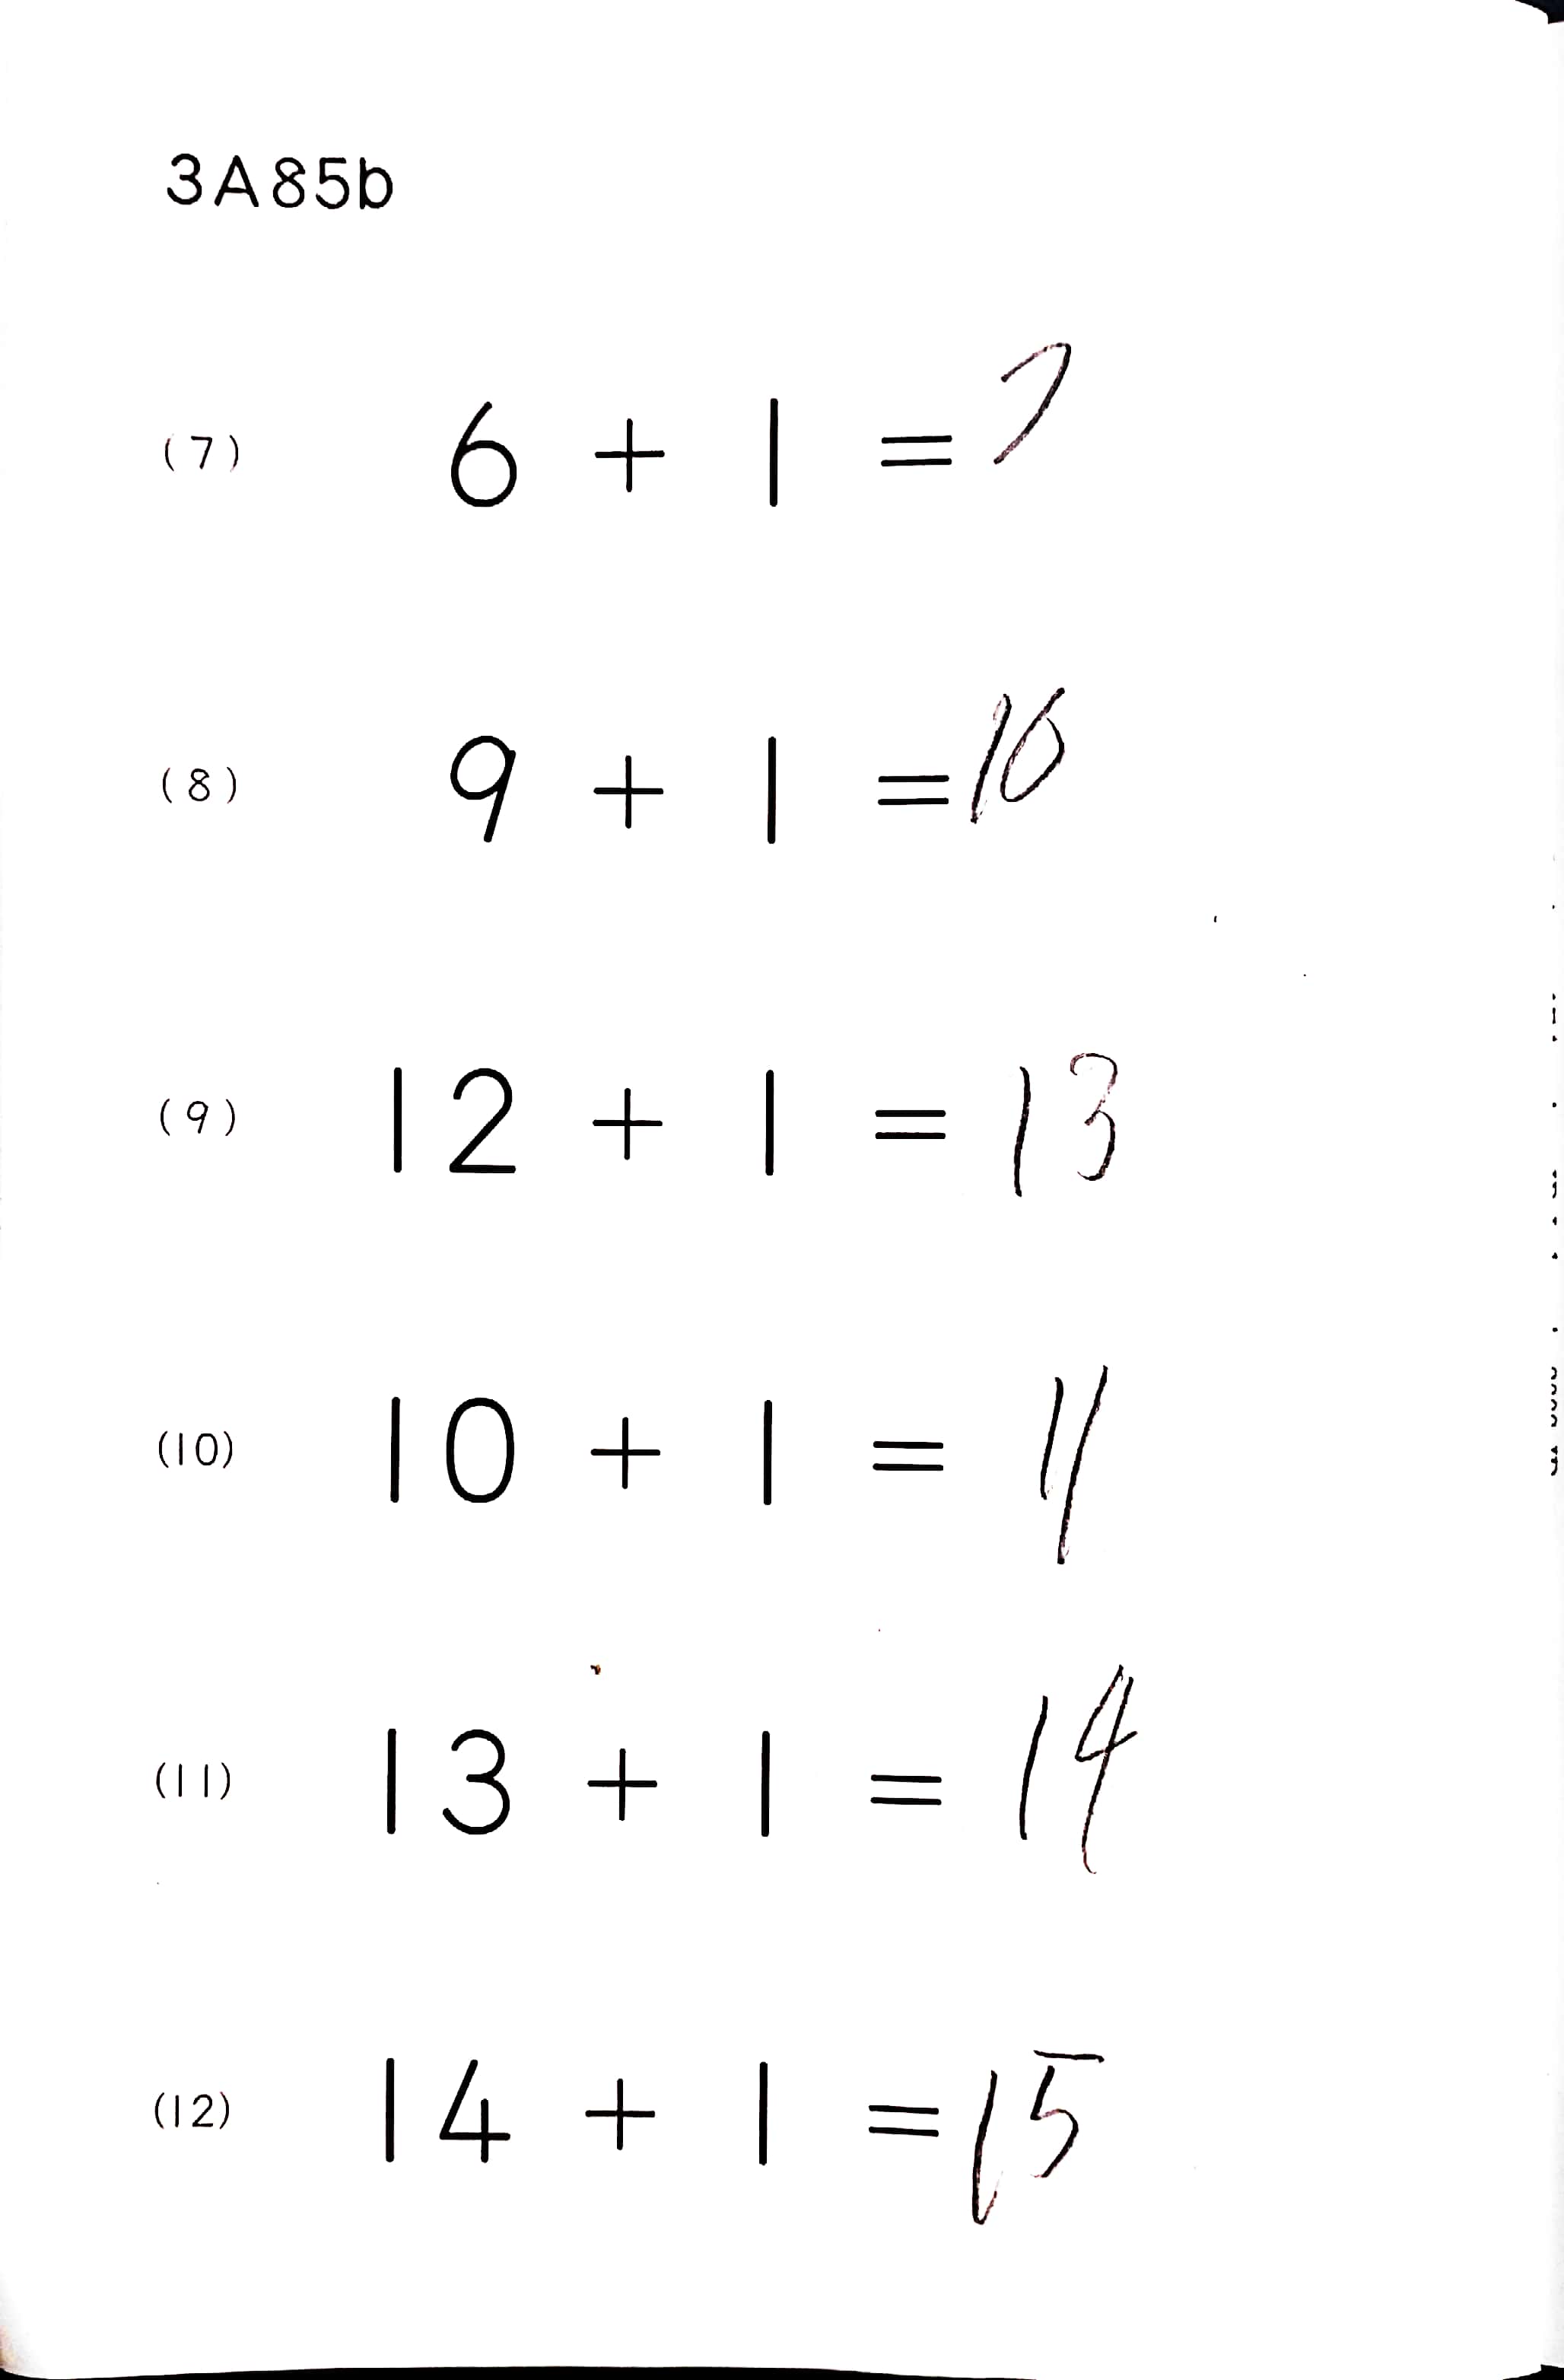 3A85b
(7) 6 + 1 = 7
(8) 9 + 1 = 10
(9) 12 + 1 = 13
(10) 10 + 1 = 11
(11) 13 + 1 = 14
(12) 14 + 1 = 15